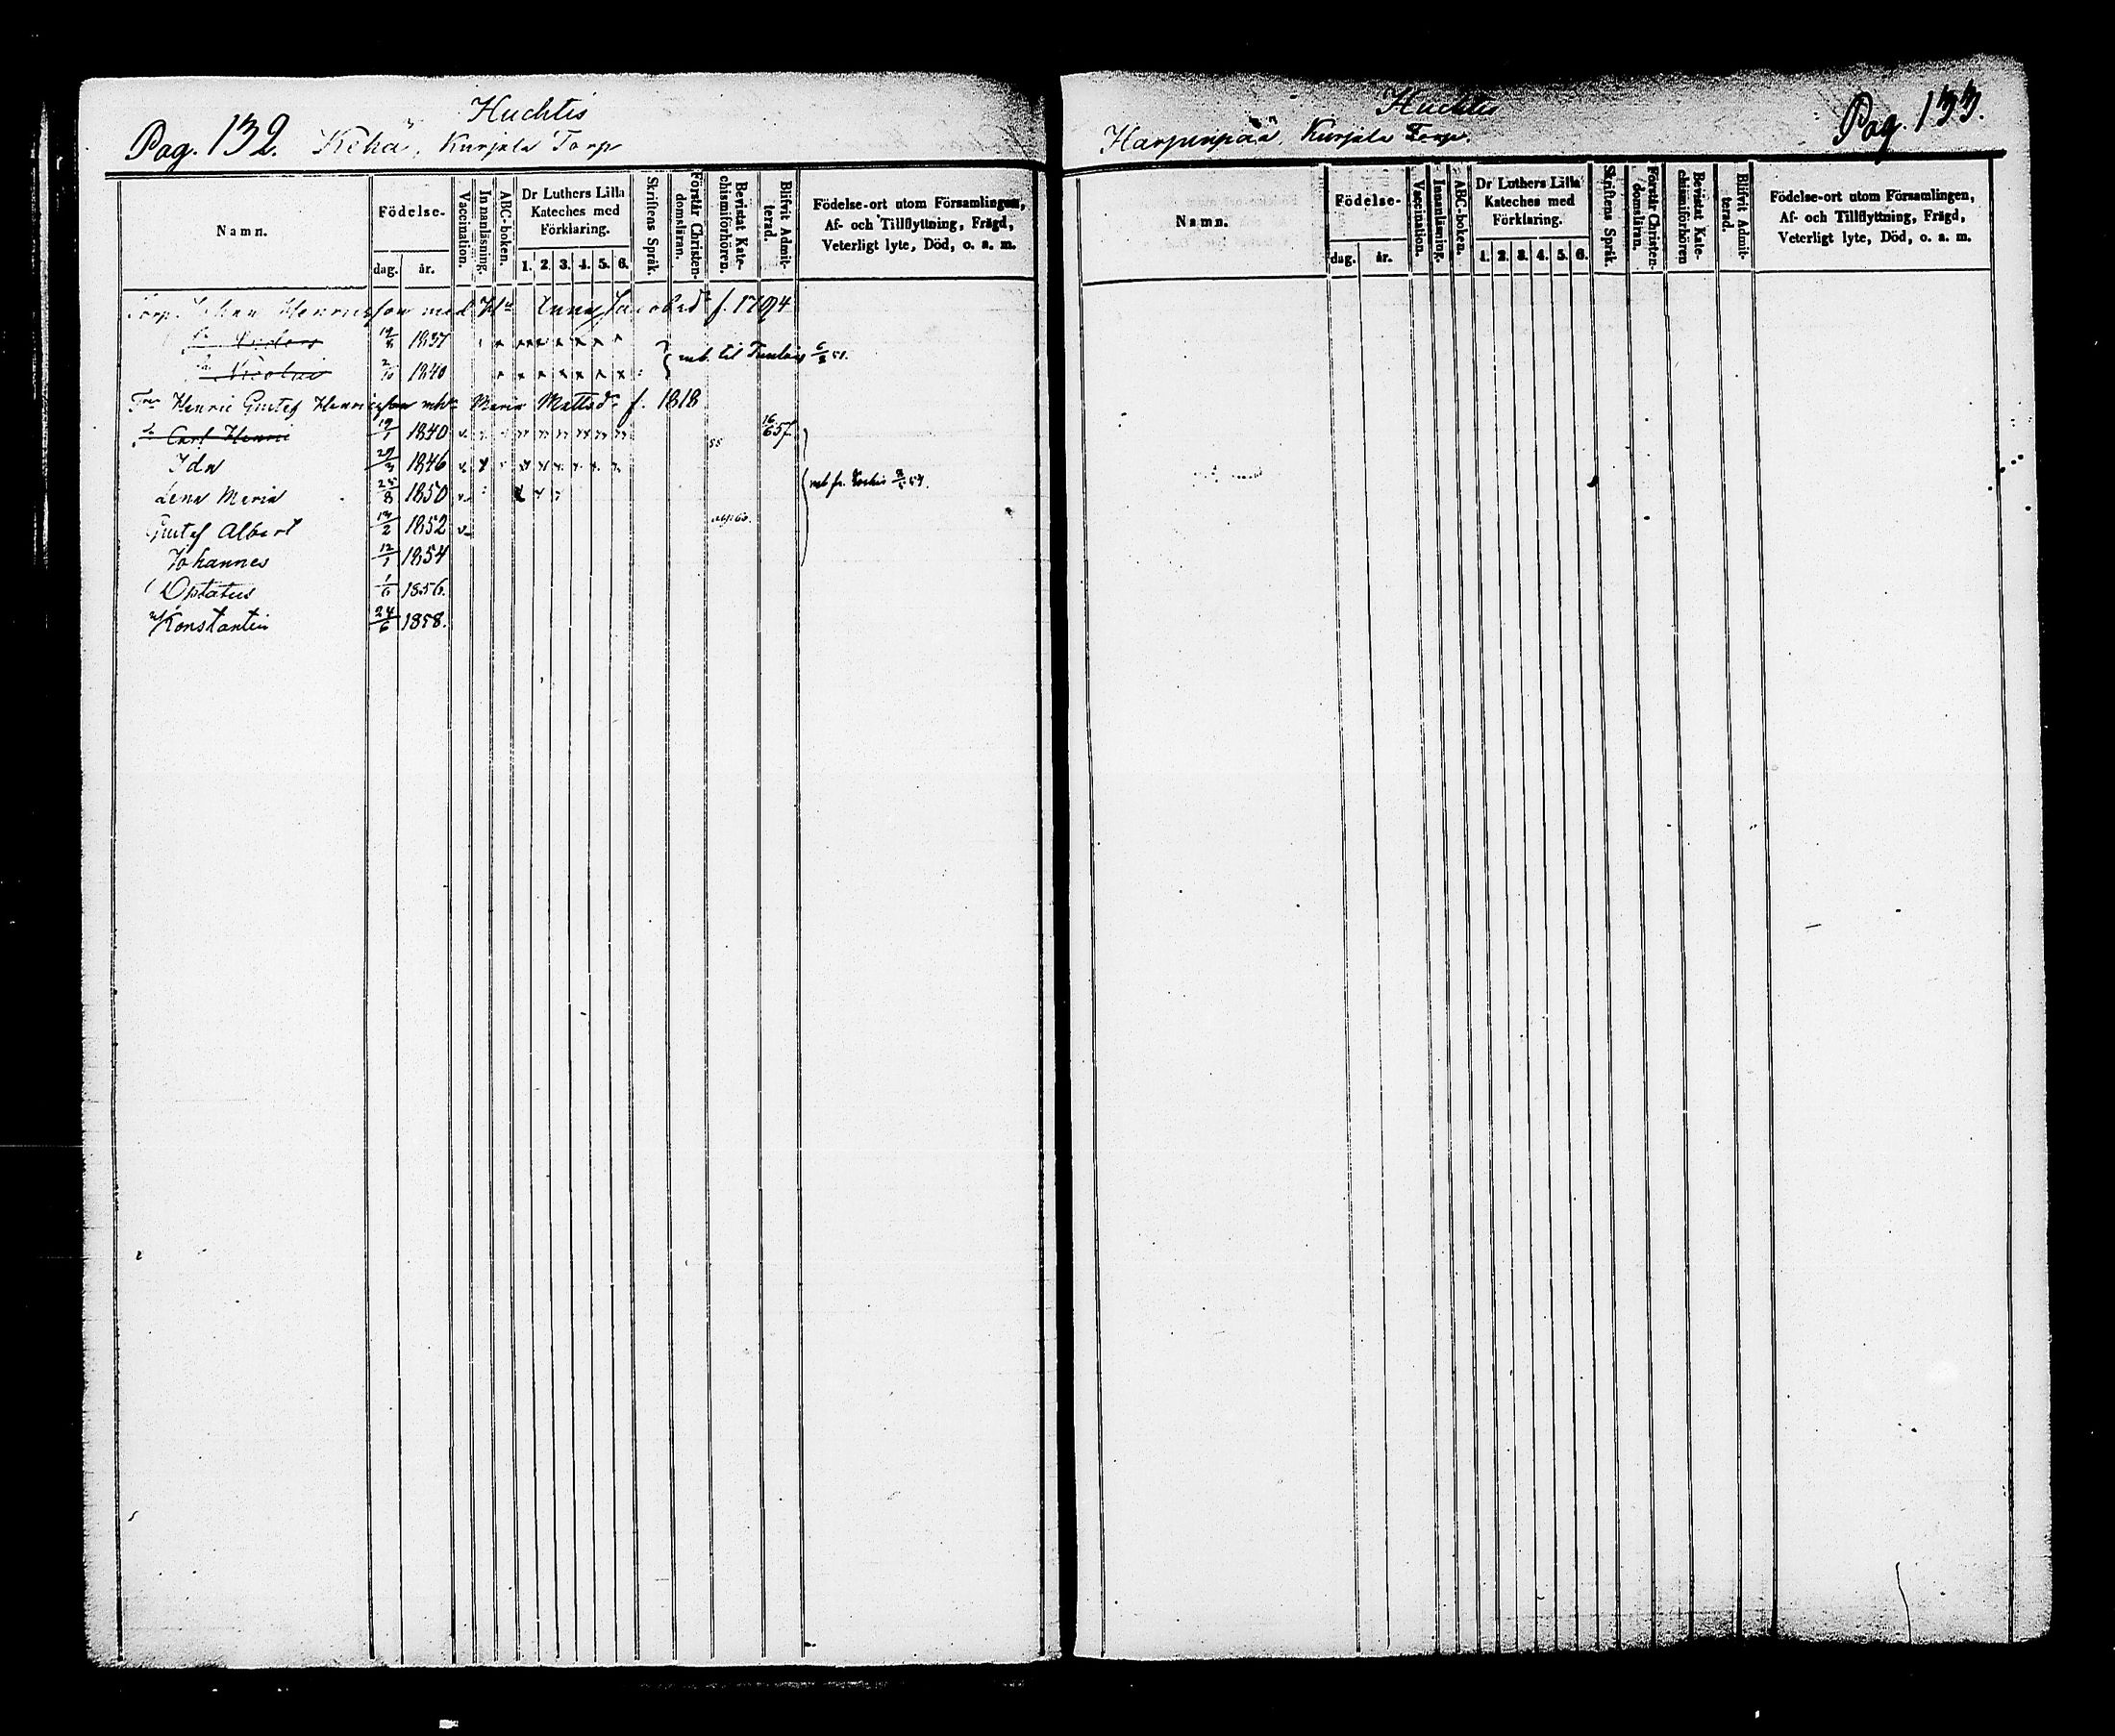 Huchtis
Pag. 132. Kehä, Kurjala Torp
Namn.
Födelse-
dag. år.
Vaccination.
Innanläsning.
ABC-boken.
Dr Luthers Lilla Kateches med Förklaring.
1. 2. 3. 4. 5. 6.
Skriftens Språk.
Förstår Christendomsläran.
Bevistat Katechismiförhören.
Blifvit Admitterad.
Födelse-ort utom Församlingen,
Af- och Tillflyttning, Frägd,
Veterligt lyte, Död, o. s. m.
Torp. Johan Henricsson med H. Anna Jacobsd. f. 1794
Anders 1837
Nicolai 2/10 1840
Henric Gustef Henricsson Maria Mattsd. f. 1818
Carl Henric 19/1 1840 v. 55 16/6 57
Ida 27/3 1846 v.
Lena Maria 25/8 1850 v.
Gustef Albert 13/2 1852 v.
Johannes 12/1 1854
Optatus 1/6 1856.
Konstantin 24/6 1858.
Huchtis
Harjunpää, Kurjala Torp.
Pag. 133.
Namn.
Födelse-
dag. år.
Vaccination.
Innanläsning.
ABC-boken.
Dr Luthers Lilla Kateches med Förklaring.
1. 2. 3. 4. 5. 6.
Skriftens Språk.
Förstår Christendomsläran.
Bevistat Katechismiförhören
Blifvit Admitterad.
Födelse-ort utom Församlingen,
Af- och Tillflyttning, Frägd,
Veterligt lyte, Död, o. s. m.